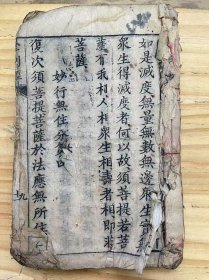 如是滅度無量無數無邊衆生實無
衆生得滅度者何以故須菩提若菩
薩有我相人相衆生相壽者相即非
菩薩
妙行無住分第四
復次須菩提菩薩於法應無所住
九